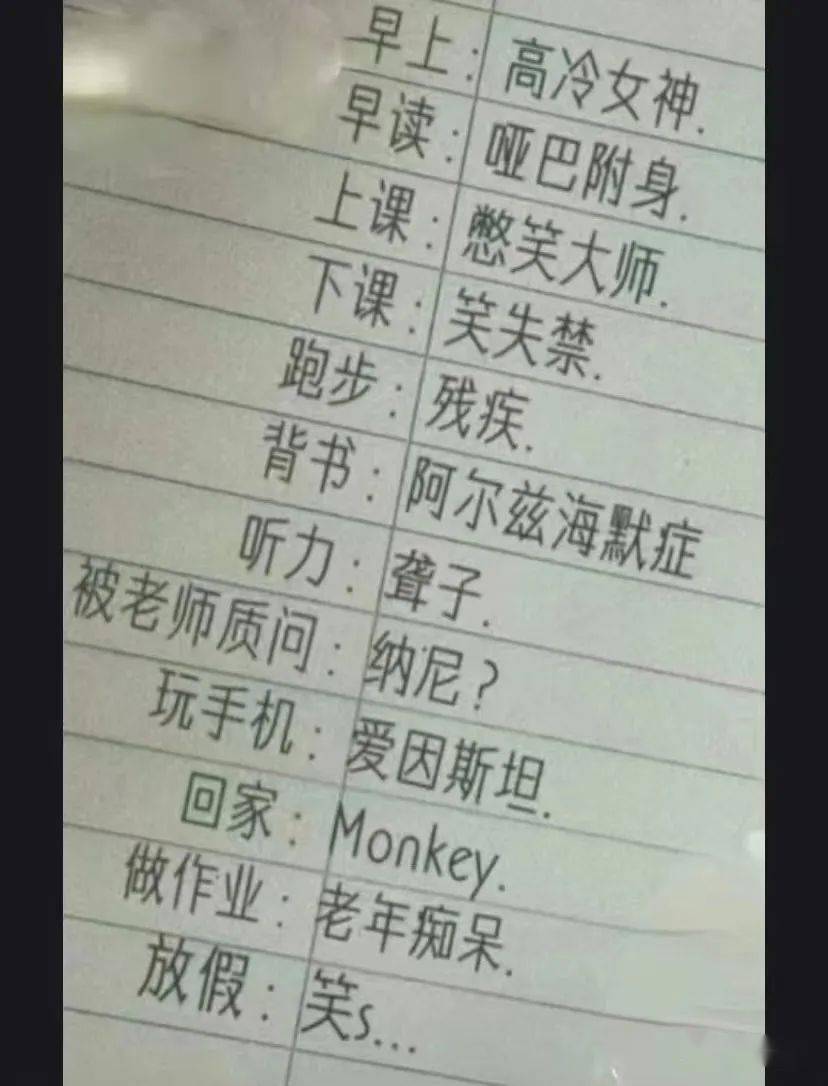 早上：高冷女神.
早读：哑巴附身.
上课：憋笑大师.
下课：笑失禁.
跑步：残疾.
背书：阿尔兹海默症
听力：聋子.
被老师质问：纳尼？
玩手机：爱因斯坦.
回家：Monkey.
做作业：老年痴呆.
放假：笑s...